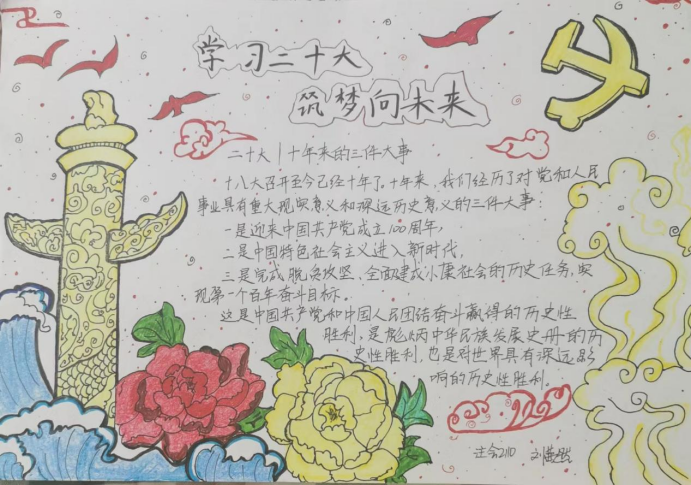 学习二十大
筑梦向未来
二十大|十年来的三件大事
十八大召开至今已经十年了。十年来，我们经历了对党和人民
事业具有重大现实意义和深远历史意义的三件大事：
一是迎来中国共产党成立100周年，
二是中国特色社会主义进入新时代，
三是完成脱贫攻坚、全面建成小康社会的历史任务，实
现第一个百年奋斗目标。
这是中国共产党和中国人民团结奋斗赢得的历史性
胜利，是彪炳中华民族发展史册的历
史性胜利，也是对世界具有深远影
响的历史性胜利。
注会2110 刘